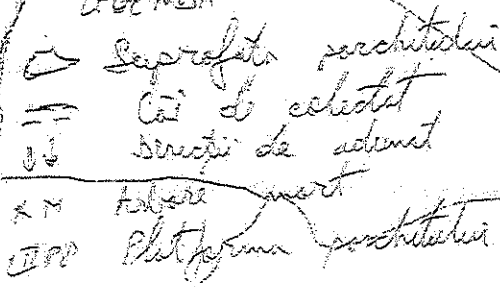 LEGENDA
Suprafața parchetului
Căi de colectat
Direcții de adunat
XM Arbore mort
PP Platforma parchetului